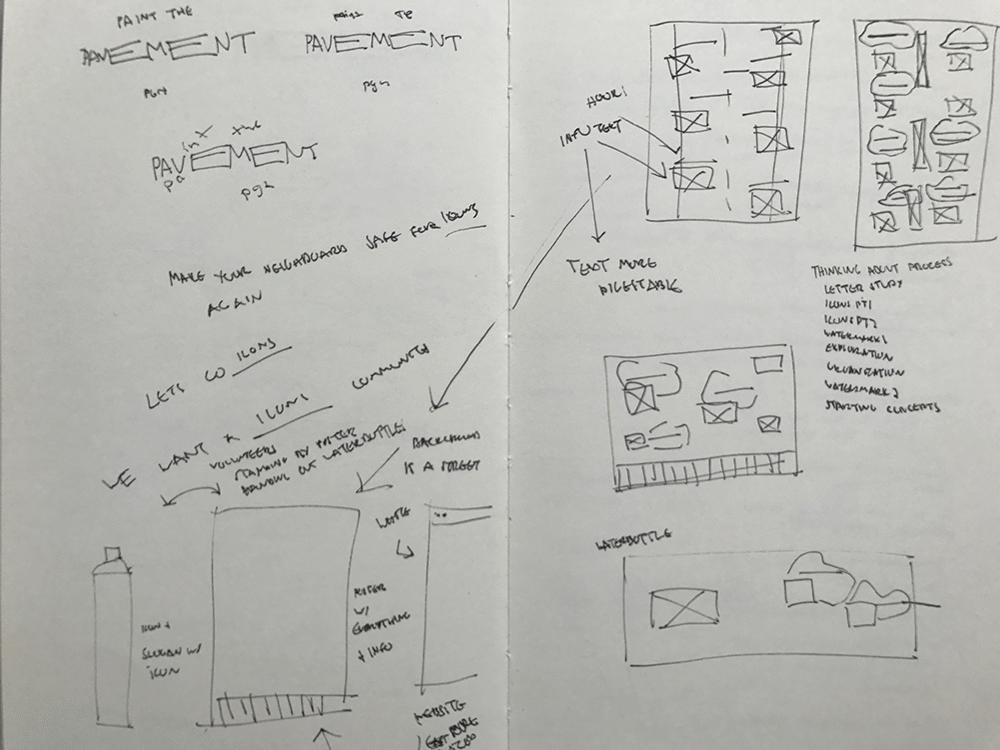 PAINT THE
PAVEMENT
PAVEMENT
PAVEMENT
pg2
MAKE YOUR NEIGHBOARD SAFE FOR ICONS
AGAIN
LETS GO ICONS
WE WANT A ICONS COMMUNITY
VOLUNTEERS
STANDING BY POSTER
HANDING OUT WATERBOTTLES
BACKGROUND
IS A STREET
ICON +
SLOGAN W/
ICON
POSTER
W/
EVERYTHING
+ INFO
WEBSITE
HOOK!
INFO TEXT
TEXT MORE
DIGESTABLE
THINKING ABOUT PROCESS
LETTER STUDY
ICONS PT1
ICONS PT2
WATERMARK1
EXPLORATION
ORGANIZATION
WATERMARK2
STARTING CONCEPTS
WATERBOTTLE